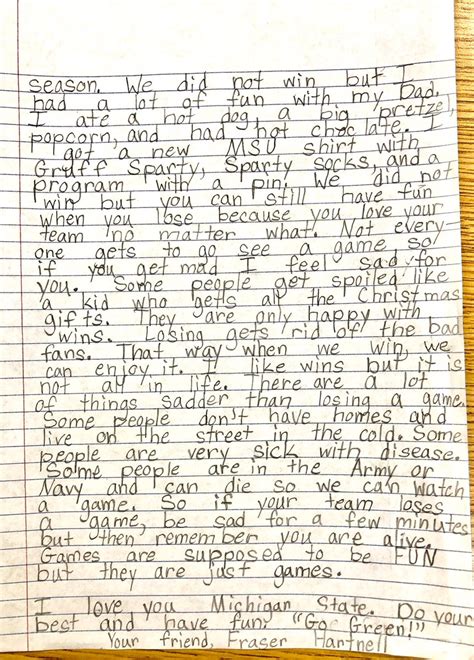 season. We did not win but I
had a lot of fun with my Dad.
I ate a hot dog, a big pretzel,
popcorn, and had hot choclate. I
got a new MSU shirt with
Gruff Sparty, Sparty socks, and a
program with a pin. We did not
win but you can still have fun
when you lose because you love your
team no matter what. Not every
one gets to go see a game so
if you get mad I feel sad for
you. Some people get spoiled like
a kid who gets all the Christmas
gifts. They are only happy with
wins. Losing gets rid of the bad
fans. That way when we win we
can enjoy it. I like wins but it is
not all in life. There are a lot
of things sadder than losing a game.
Some people don't have homes and
live on the street in the cold. Some
people are very sick with disease.
Some people are in the Army or
Navy and can die so we can watch
a game. So if your team loses
a game, be sad for a few minutes
but then remember you are alive.
Games are supposed to be FUN
but they are just games.
I love you Michigan State. Do your
best and have fun. "Go Green!"
Your friend, Fraser Hartnell